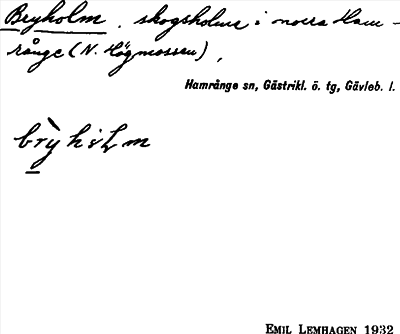 Bryholm, skogsholme i norra Ham-
rånge (N. Högmossen),
Hamrånge sn, Gästrikl. ö. tg, Gävleb. l.
EMIL LEMHAGEN 1932